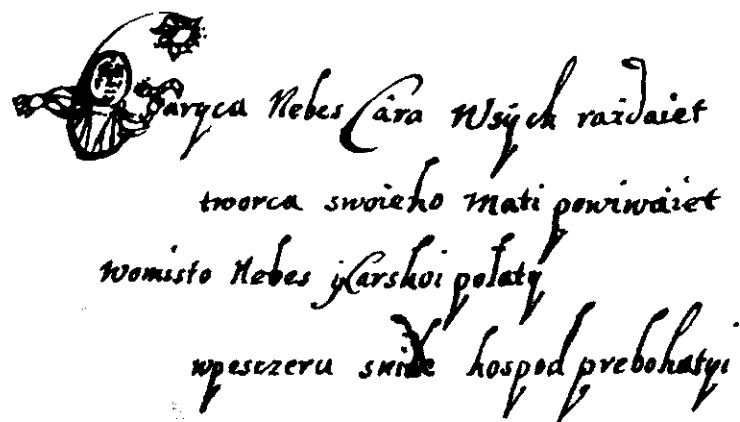 Caryca Nebes Cára Wsých raždaiet
tworca swoieho Mati powiwáiet
womisto Nebes y Carskoi połaty
wpesczeru snide hospod prebohatyi